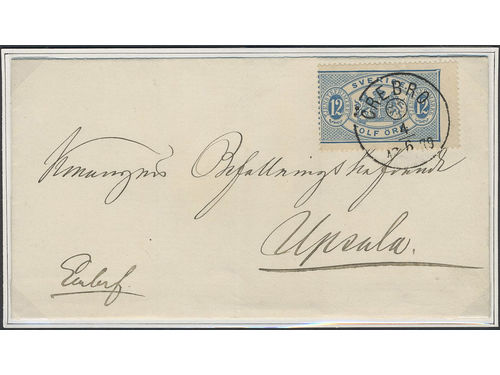 SVERIGE
12 12
TOLF ÖRE
ÖREBRO
4
12 6 76
Konungens Befallningshafvande
Upsala.